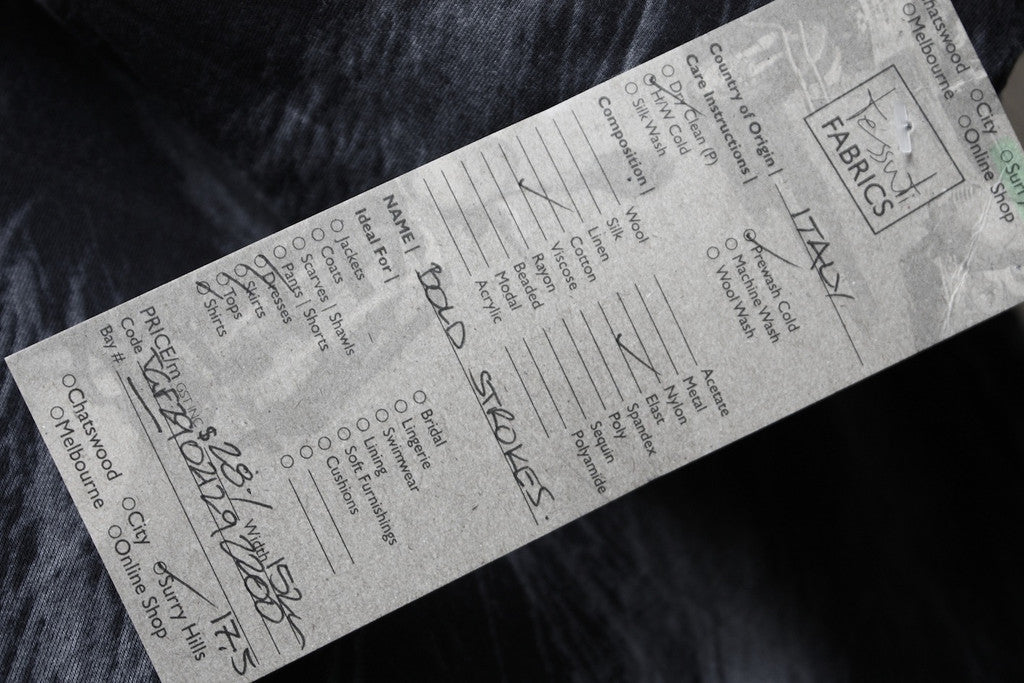 Chatswood
Melbourne
City
Online Shop
Surr
Tessuti
FABRICS
Country of Origin | ITALY
Care Instructions |
Dry Clean (P)
H/W Cold
Silk Wash
Prewash Cold
Machine Wash
Wool Wash
Composition |
Wool
Silk
Linen
Cotton
Viscose
Rayon
Beaded
Modal
Acrylic
Acetate
Metal
Nylon
Elast
Spandex
Poly
Sequin
Polyamide
NAME | BOLD STROKES.
Ideal For |
Jackets
Coats
Scarves | Shawls
Pants | Shorts
Dresses
Skirts
Tops
Shirts
Bridal
Lingerie
Swimwear
Lining
Soft Furnishings
Cushions
PRICE/m GST INC $28.- Width
Code
Bay #
Chatswood
Melbourne
City
Online Shop
Surry Hills 17,5